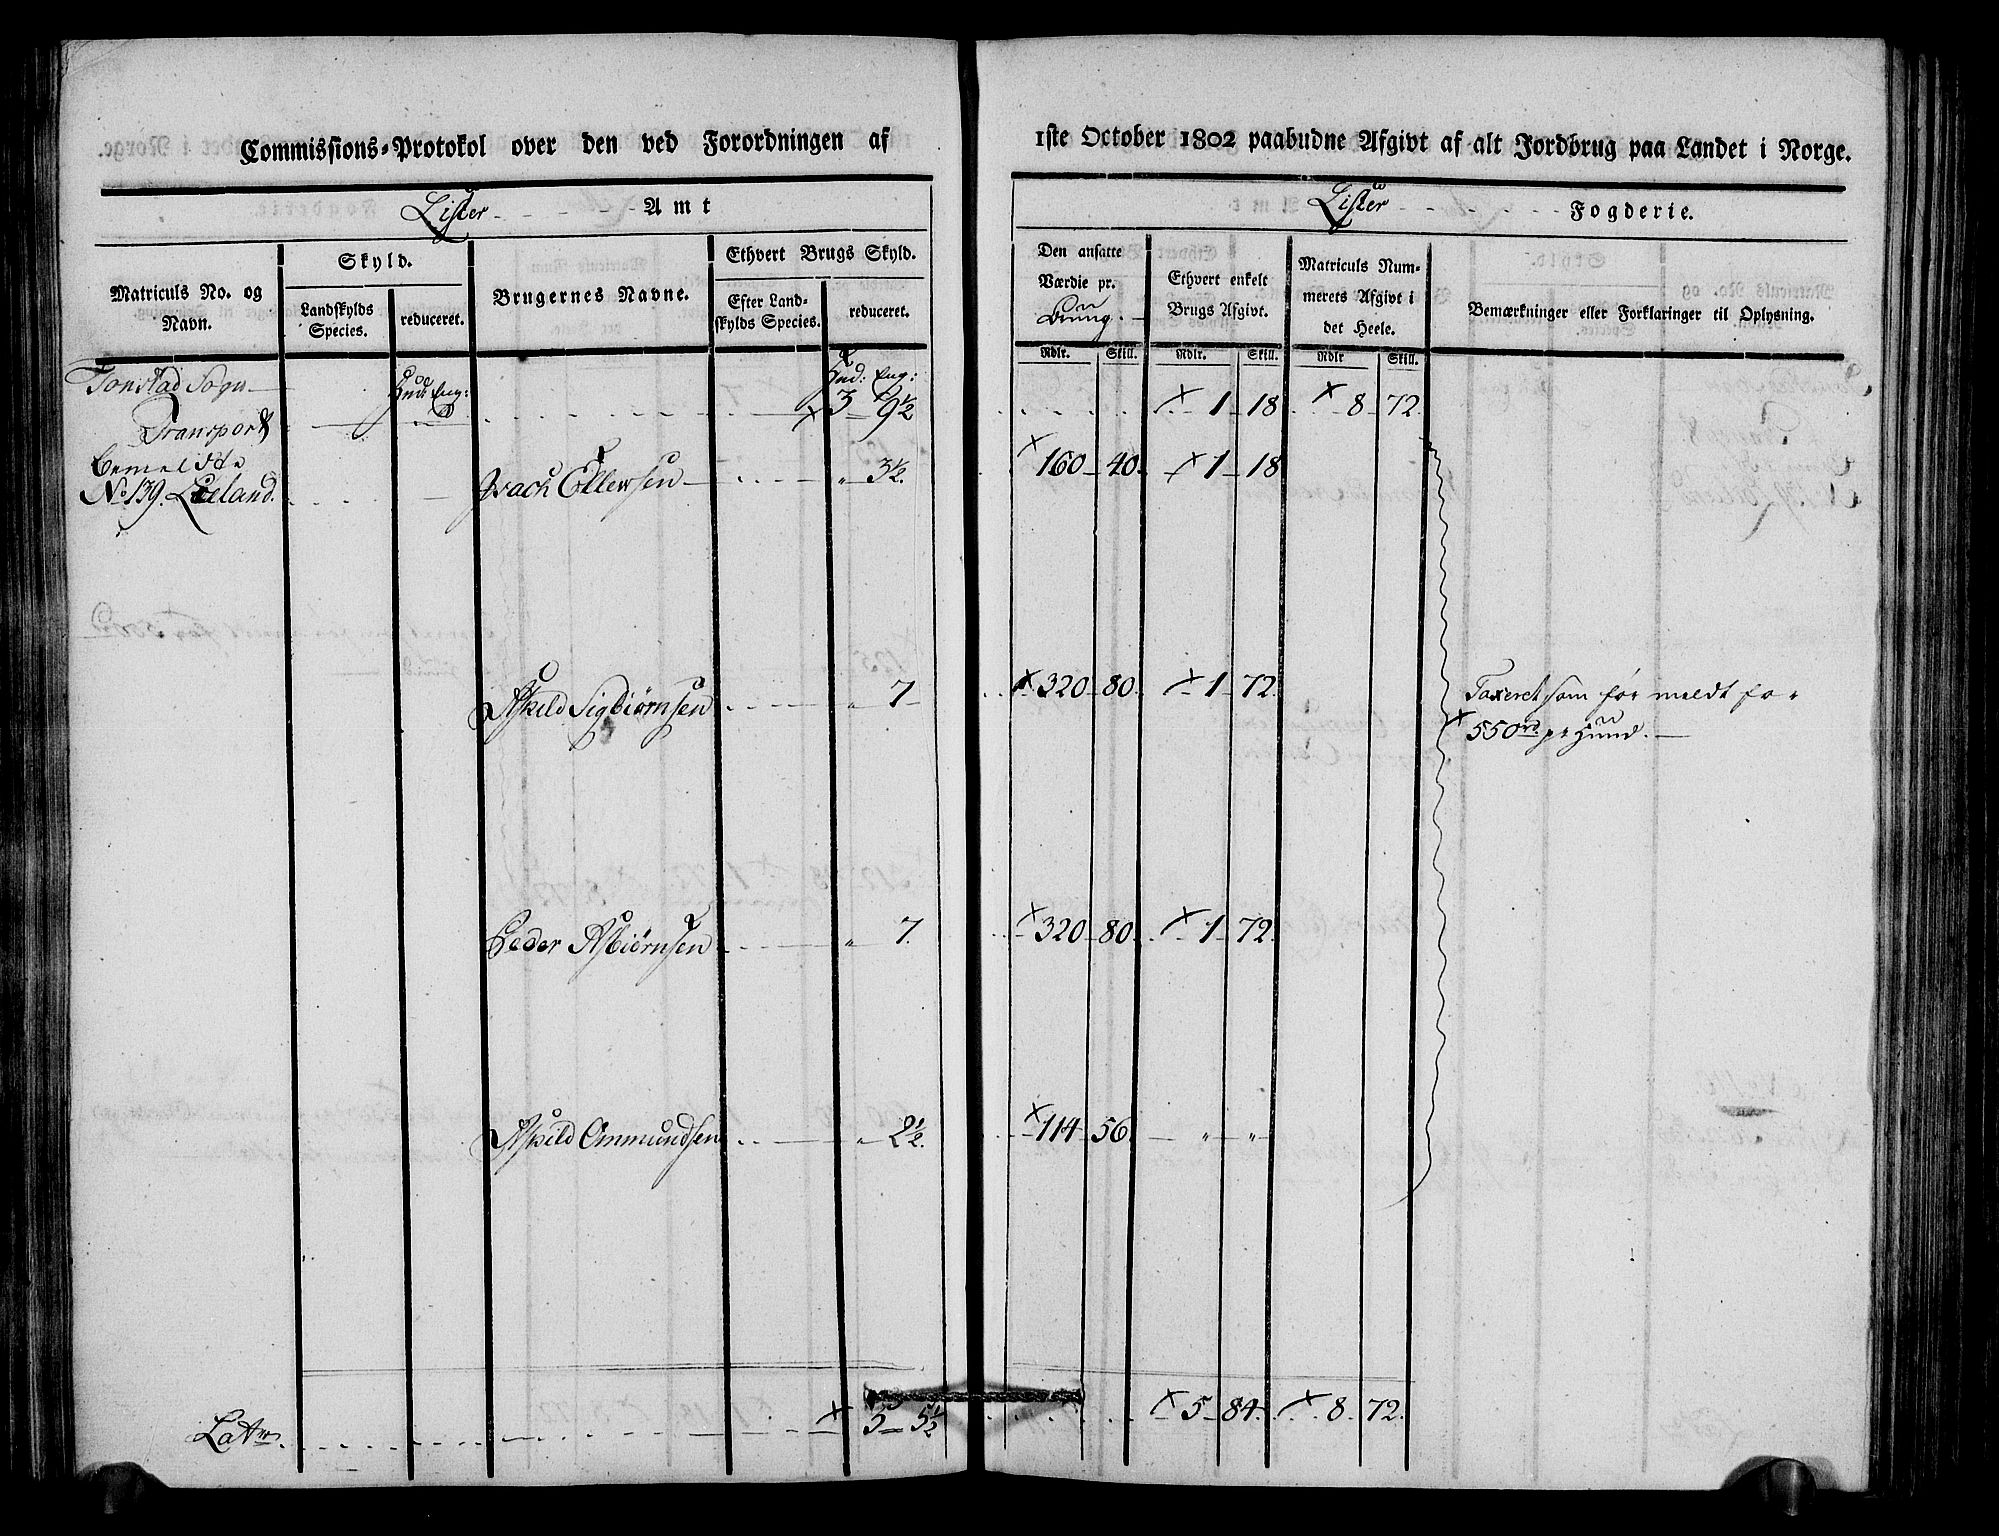 Commissions-Protokol over den ved Forordningen af
1ste October 1802 paabudne Afgivt af alt Jordbrug paa Landet i Norge.
Lister Amt
Lister Fogderie.
Matriculs No. og Navn.
Skyld.
Landskylds Species.
reduceret.
Brugernes Navne.
Ethvert Brugs Skyld.
Efter Landskylds Species.
reduceret.
Den ansatte Værdie pr.
Ethvert enkelt Brugs Afgivt.
Matriculs Nummerets Afgivt i det Heele.
Bemærkninger eller Forklaringer til Oplysning.
Rdlr. Skill. Rdlr. Skill. Rdlr Skill.
Tonstad Sogn
Hud: Eng: Hud: Eng:
Transport 3 9½ 1 18 8 72
bemeldte
No 139. Lieland. Isach Ellevsen " 3½. 160 40. 1 18
Askild Sigbiørnsen " 7 320 80. 1 72. Taxeret som før meldt for
550 rd. pr Huud.
Peder Asbiørnsen " 7. 320 80. 1 72.
Askild Ommundsen " 2½. 114 56. " "
Lat. 3 5½ 5 84. 8 72.